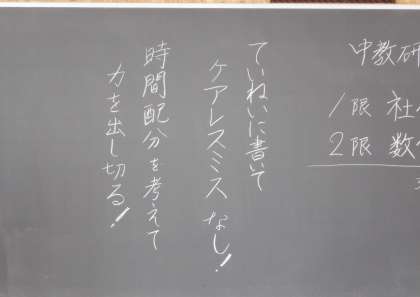 中教研
1限 社
2限 数
ていねいに書いて
ケアレスミスなし!
時間配分を考えて
力を出し切る!